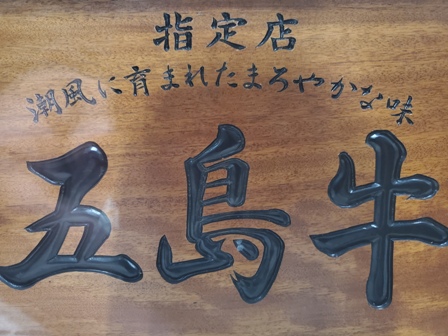 指定店
潮風に育まれたまろやかな味
五島牛